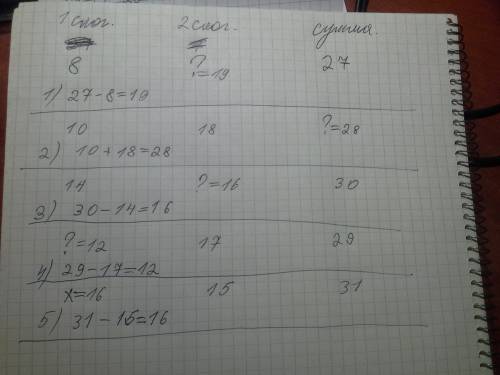 1 слог. 2 слог. сумма.
8 ?=19 27
1) 27-8=19
10 18 ?=28
2) 10+18=28
14 ?=16 30
3) 30-14=16
?=12 17 29
4) 29-17=12
x=16 15 31
5) 31-15=16